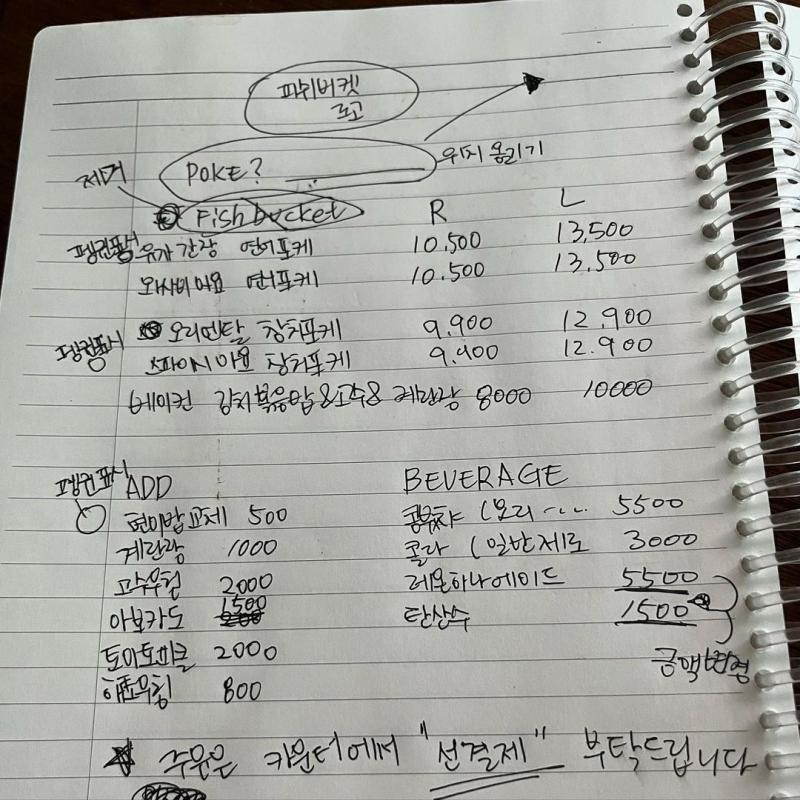 파쉬버켓
로고
POKE?
위치 옮기기
제거
Fish bucket R L
유자간장 연어포케 10,500 13,500
와사비마요 연어포케 10.500 13,500
오리엔탈 참치포케 9.900 12.900
스파이시마요 참치포케 9.900 12.900
베이컨 김치볶음밥&고수& 계란장 8000 10000
ADD BEVERAGE
현미밥교체 500 (오리..... 5500
계란장 1000 콜라 (일반제로 3000
고수추첨 2000 레몬하나에이드 5500
아보카도 1500 탄산수 1500
토마토피클 2000
800
금액변경
주문은 카운터에서 "선결제" 부탁드립니다